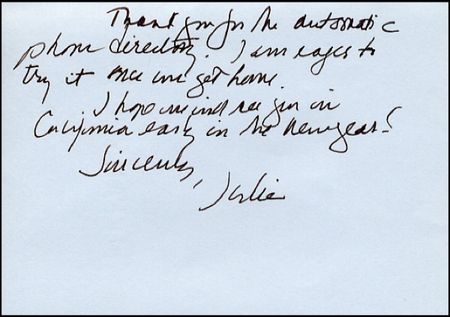 Thank you for the automatic
phone directory. I am eager to
try it once we get home.
I hope we see you in
California early in the new year!
Sincerely,
Julie